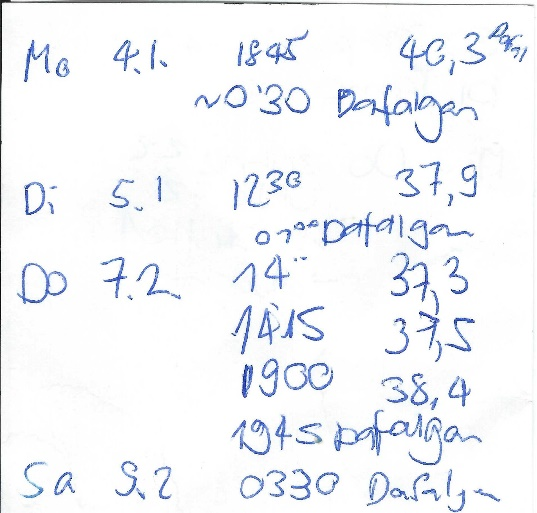 Mo 4.1. 1845 40,3
~0'30 Dafalgan
Di 5.1 12³⁰ 37,9
07⁰⁰ Dafalgan
Do 7.2. 14⁻⁻ 37,3
14.15 37,5
1900 38,4
1945 Dafalgan
Sa 9.2 0330 Dafalgan